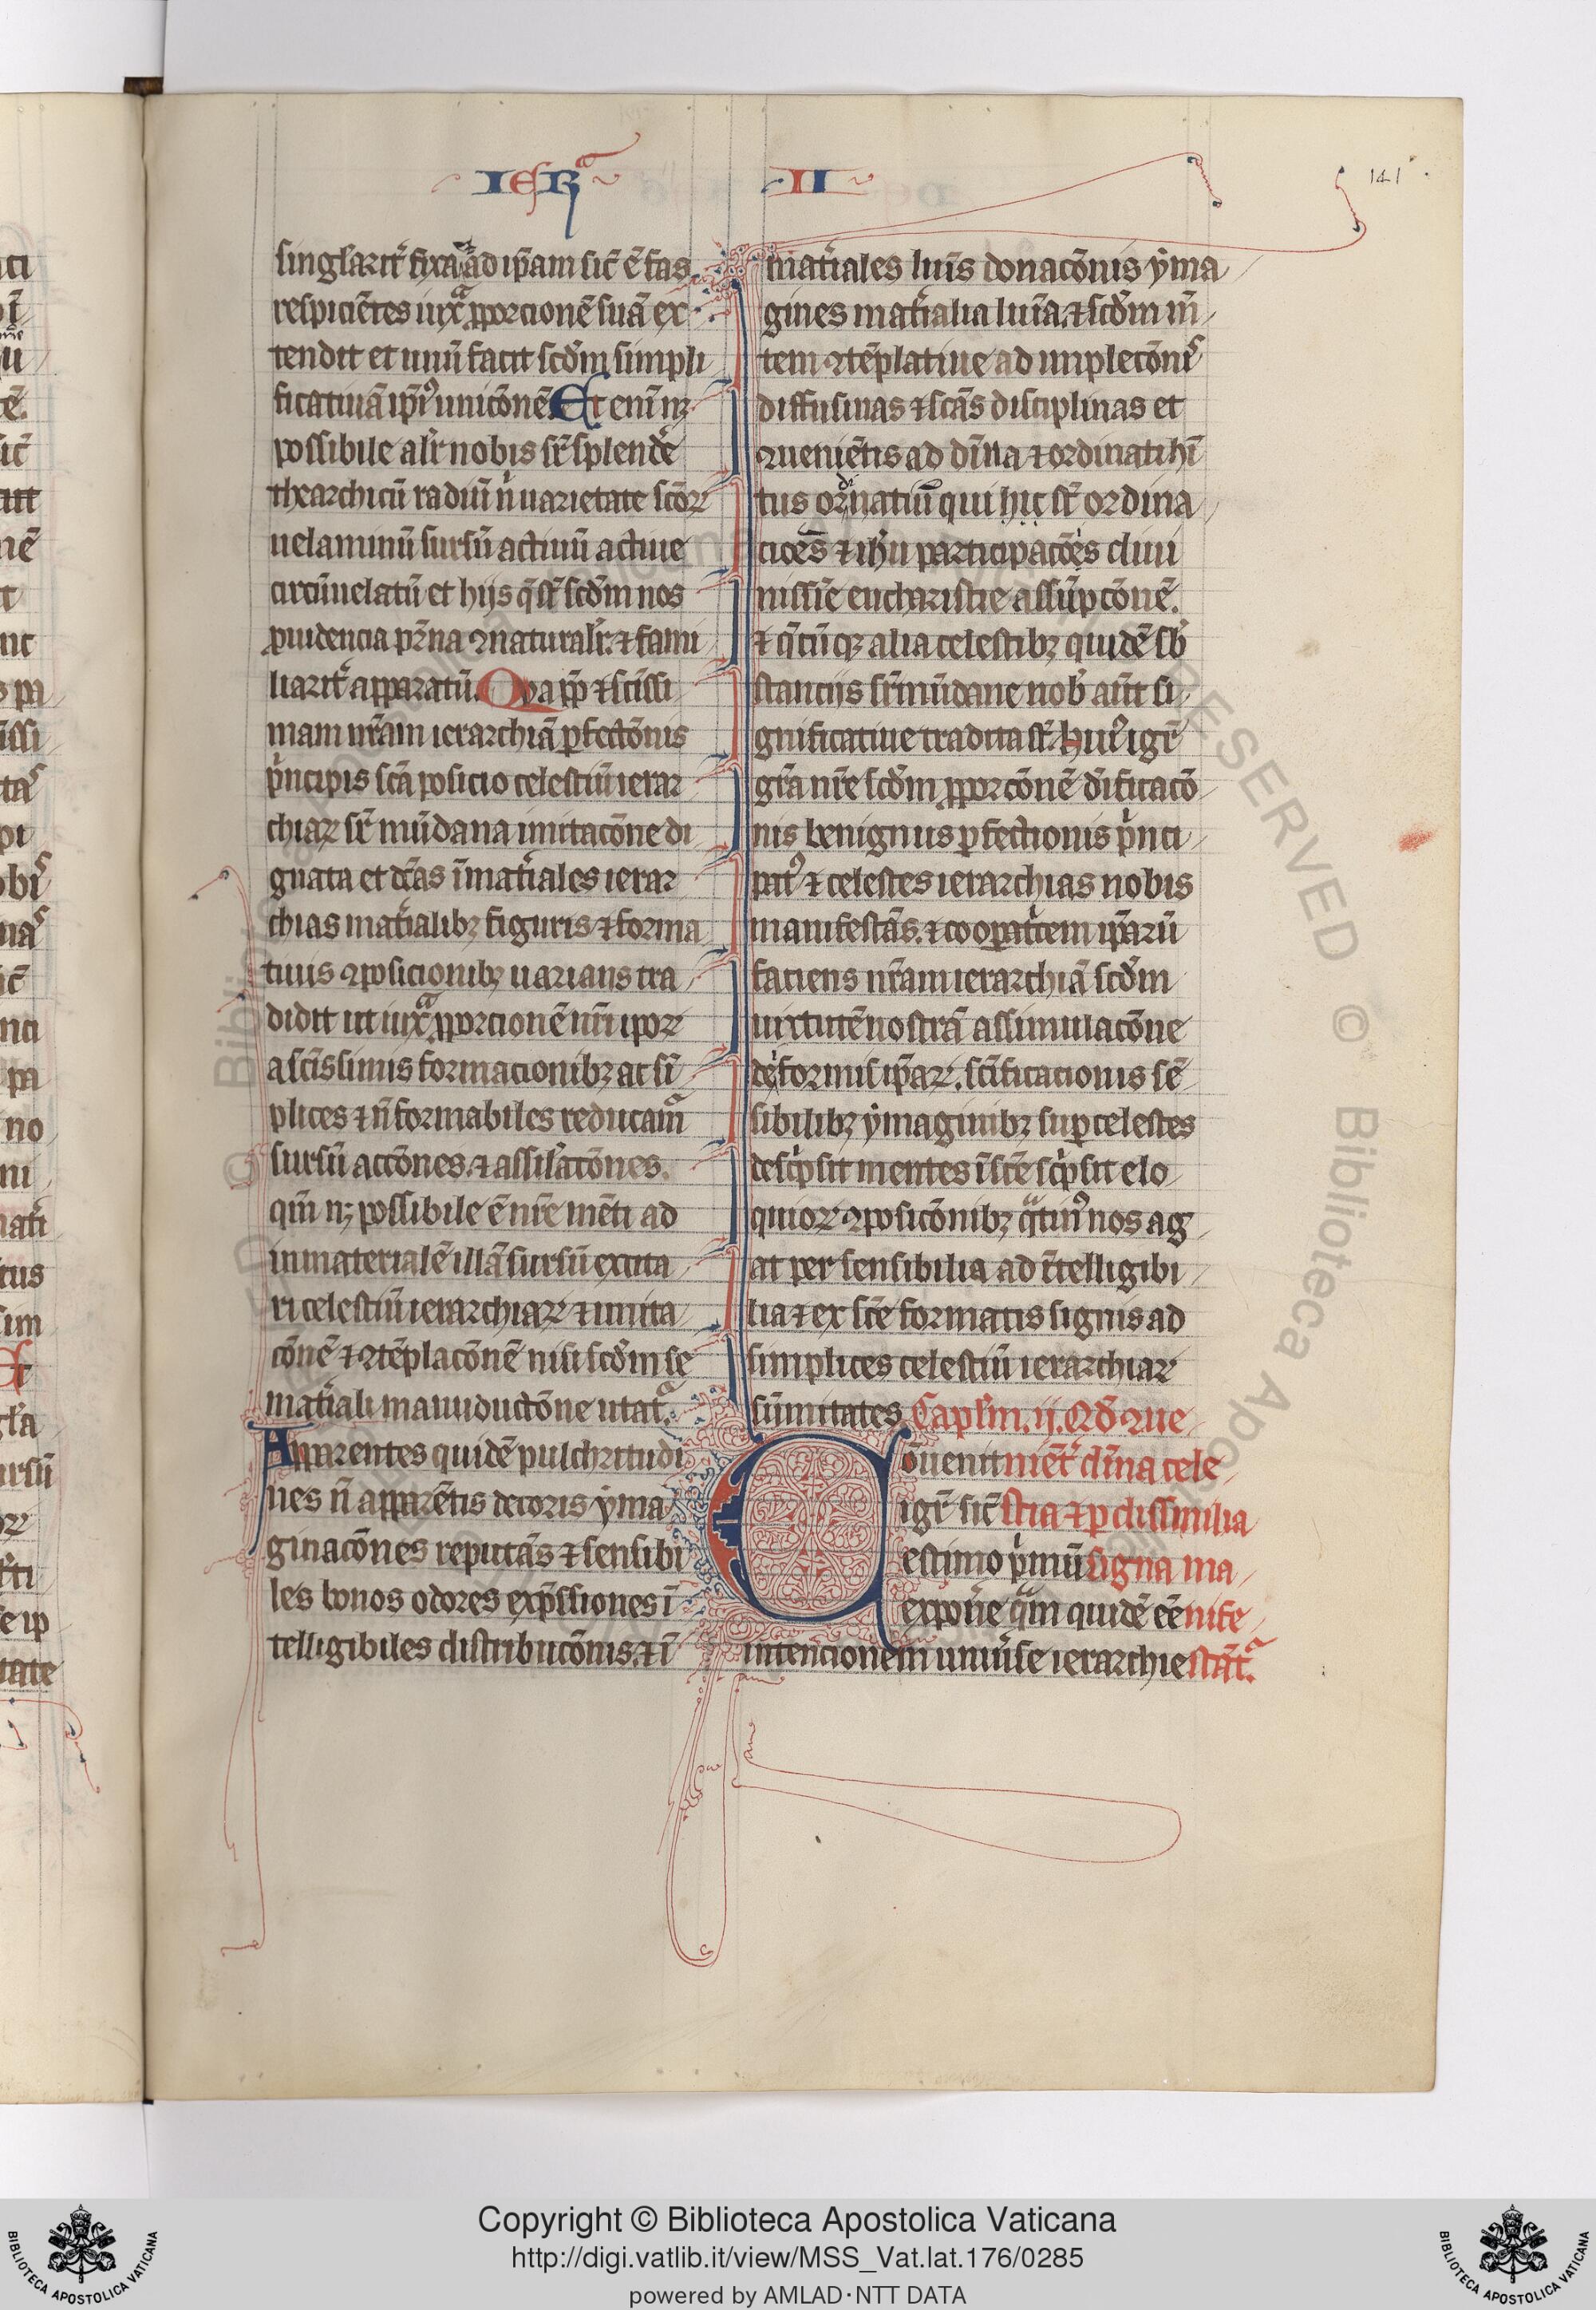 IERa II
141
singlarit̾ fixa ad ip̄am sic̄ ē fas
respiciētes iuxᵃ ꝓporcionē suā ex
tendit et unū facit scd̄m simpli
ficatiuā ip̄iꝰ unicōnē Et enī nꝫ
possibile alit̾ nobis sr̄splendē
thearchicū radiū nͥ uarietate scōꝝ
uelaminū sursū actiuū actiue
circūuelatū et hijs q̄ st̄ scd̄m nos
ꝓuidencia pr̄na ꝯnaturalr̄. ⁊ fami
liarit̾ apparatū. Qua ꝓp̄ ⁊ sc̄issi
mam nr̄am ierarchiā ꝑfectōnis
pͥncipis sc̄a posicio celestiū ierar
chiaꝝ sr̄ mūdana imitacōne di
gnata et dc̄as īmat̾iales ierar
chias mat̾ialibꝫ figuris ⁊ forma
tiuis ꝯposicionibꝫ uarians tra
didit ut iuxᵃ ꝓporcionē nr̄i ipoꝝ
a sc̄issimis formacionibꝫ at si
plices ⁊ n̄ formabiles reducamᵃ
sursū accōnes. ⁊ assil̾atōnes.
qm̄ nꝫ possibile ē nr̄e mēti ad
inmaterialē illā sursū excita
ri celestiū ierarchiaꝝ ⁊ imita
cōnē ⁊ ꝯtēplacōnē nisi scd̄m se
mat̾iali manuductōne utatᵃ.
Apparentes quidē pulchritudi
nes n̄ apparētis decoris yma
ginacōnes reputās ⁊ sensibi
les bonos odores exp̄ssiones ī
telligibiles distribucōnis. ⁊ ī
mat̾iales luīs donacōnis yma
gines mat̾ialia luīa. ⁊ scd̄m m̄
tem ꝯtēplatiue ad implecōnis
diffusiuas ⁊ sc̄as disciplinas et
ꝯueniētis ad dīna ⁊ ordinati hī
tus ordinatiū qui hic st̄ ordina
cioēs ⁊ ih̄u participacōēs diui
nissīe eucharistie assūpcōnē.
⁊ q̄cūqꝫ alia celestibꝫ quidē sb̾
stancijs sr̄mūdane nob̾ aūt si
gnificatiue tradita st̄. huiꝰ igr̄
gr̄a nr̄e scd̄m ꝓporcōnē dīficacō
nis benignus ꝑfectionis pͥnci
patꝰ ⁊ celestes ierarchias nobis
manifestās. ⁊ cooꝑat̾cem ip̄arū
faciens nr̄am ierarchiā scd̄m
uirtutē nostrā assimulacōne
deformis ip̄aꝝ. sc̄ificationis sē
sibilibꝫ ymaginibꝫ suꝑcelestes
descͥpsit mentes ī sc̄e scͥpsit elo
quioꝝ ꝯposicōnibꝫ qᵃtinꝰ nos ag
at per sensibilia ad ītelligibi
lia ⁊ ex sc̄e formatis signis ad
simplices celestiū ierarchiaꝝ
sūmitates. Capl̄m. ij. Qd̄ ꝯue
Cōuenit niēt̾ dīna cele
igr̄ sic̄ stia ⁊ ꝑ dissimilia
estimo pͥmū signa ma
exponē qᵃm quidē eē nife
intencionem uniuͥse ierarchie stātᵃ.
Copyright © Biblioteca Apostolica Vaticana
http://digi.vatlib.it/view/MSS_Vat.lat.176/0285
powered by AMLAD·NTT DATA
BIBLIOTECA APOSTOLICA VATICANA
BIBLIOTECA APOSTOLICA VATICANA